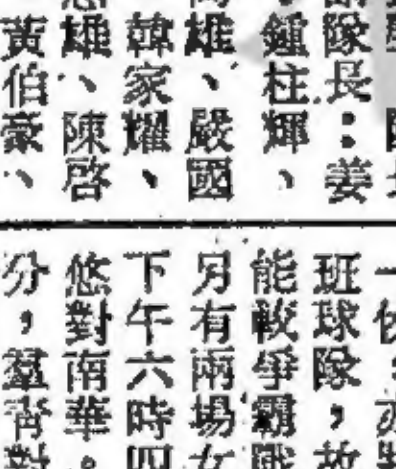 隊長：姜
鐘柱輝、
雄、嚴國
韓家耀、
雄、陳啓
黃伯豪、
班球隊，故
能較爭霸戰
另有兩場女
下午六時四
悠對南華。
分，羣青對